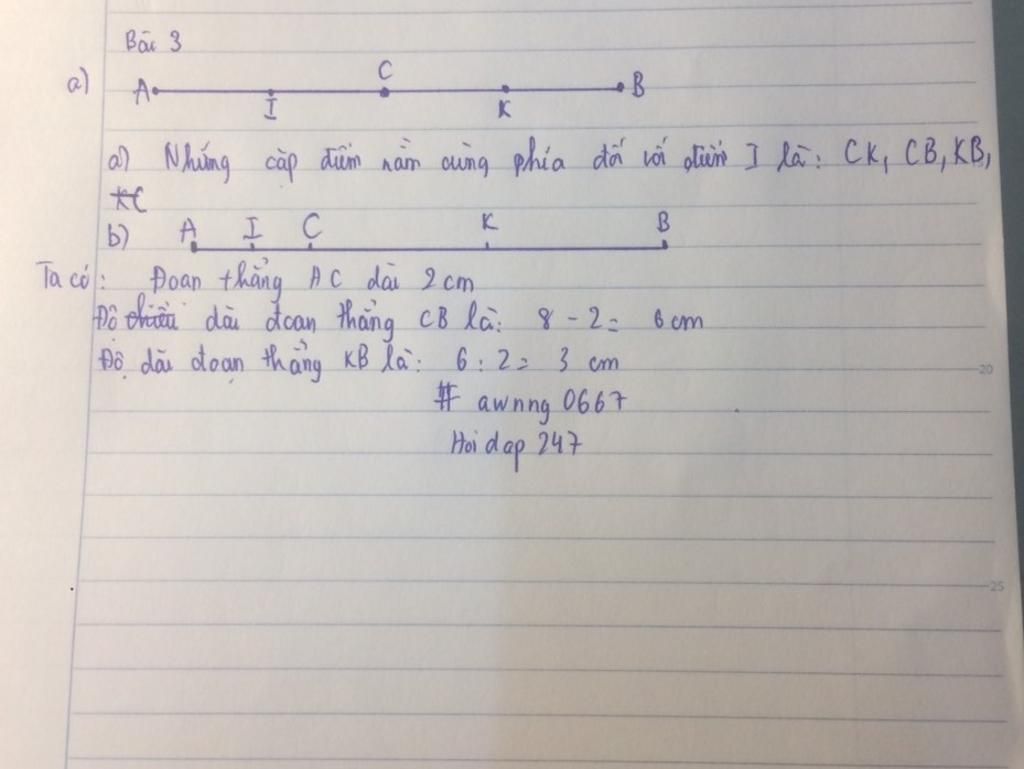 Bài 3
a)
A C B
I K
a) Những cặp điểm nằm cùng phía đối với điểm I là: CK, CB, KB,
KC
b) A I C K B
Ta có: Đoạn thẳng AC dài 2 cm
Độ chiều dài đoạn thẳng CB là: 8 - 2 = 6 cm
Độ dài đoạn thẳng KB là: 6 : 2 = 3 cm
# awnng 0667
Hoi dap 247
20
25